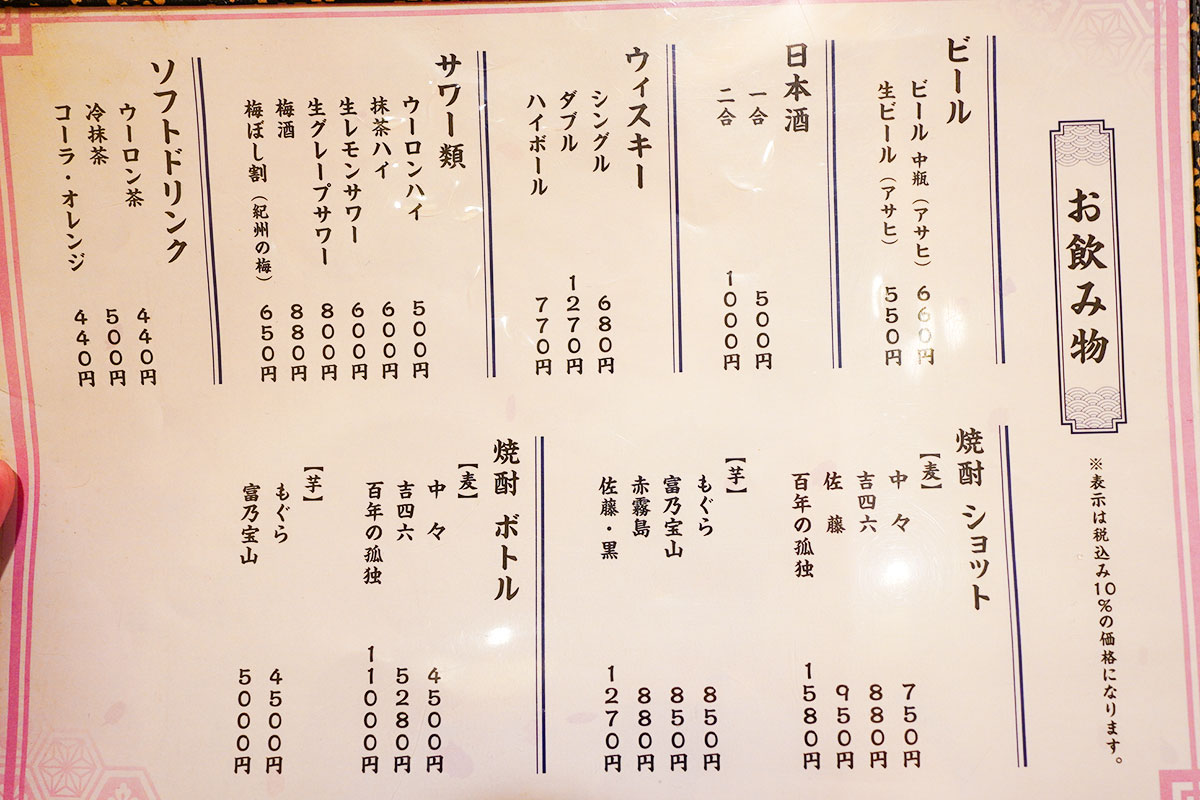 お飲み物
※表示は税込み10%の価格になります。
ビール
ビール 中瓶（アサヒ） 660円
生ビール（アサヒ） 550円
日本酒
一合 500円
二合 1000円
ウィスキー
シングル 680円
ダブル 1270円
ハイボール 770円
サワー類
ウーロンハイ 500円
抹茶ハイ 600円
生レモンサワー 600円
生グレープサワー 800円
梅酒 880円
梅ぼし割（紀州の梅） 650円
ソフトドリンク
ウーロン茶 440円
冷抹茶 500円
コーラ・オレンジ 440円
焼酎 ショット
【麦】
中々 750円
吉四六 880円
佐藤 950円
百年の孤独 1580円
【芋】
もぐら 850円
富乃宝山 850円
赤霧島 880円
佐藤・黒 1270円
焼酎 ボトル
【麦】
中々 4500円
吉四六 5280円
百年の孤独 11000円
【芋】
もぐら 4500円
富乃宝山 5000円